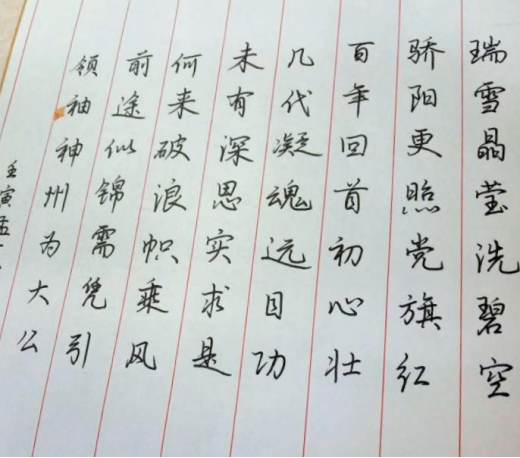 瑞雪晶莹洗碧空
骄阳更照党旗红
百年回首初心壮
几代凝魂远目功
未有深思实求是
何来破浪帜乘风
前途似锦需凭引
领袖神州为大公
壬寅孟